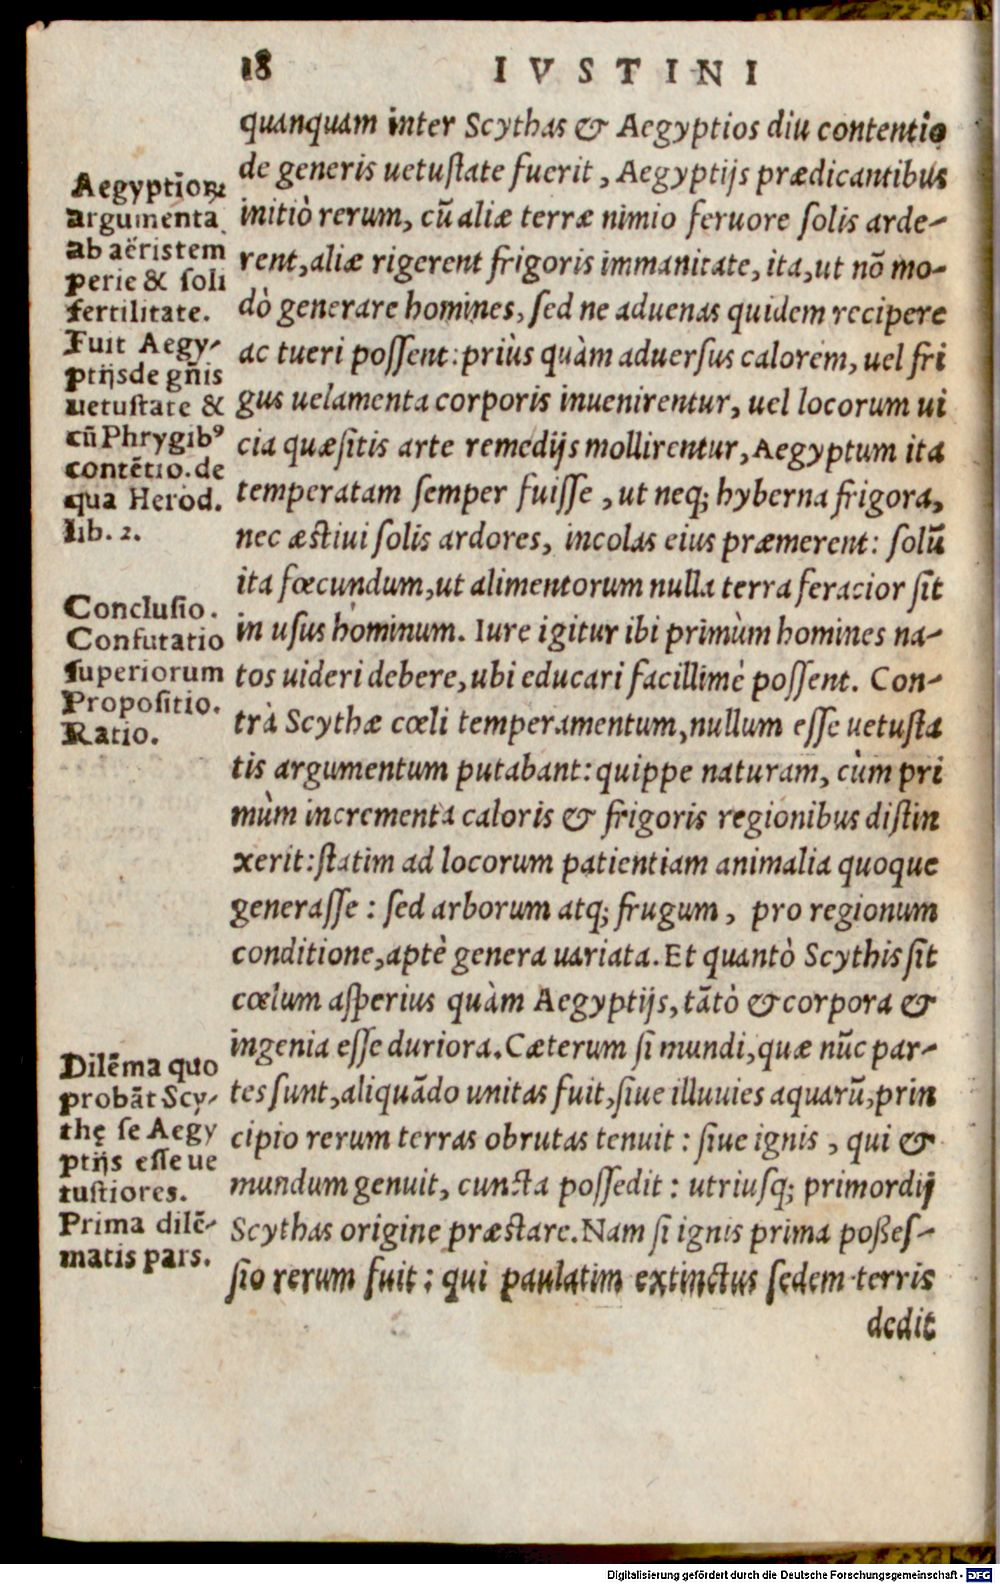 18 IVSTINI
quanquam inter Scythas & Aegyptios diu contentio
de generis uetuſtate fuerit, Aegyptijs prædicantibus
initiò rerum, cũ aliæ terræ nimio feruore ſolis arde-
rent, aliæ rigerent frigoris immanitate, ita, ut nõ mo-
dò generare homines, ſed ne aduenas quidem recipere
ac tueri poſſent: priùs quàm aduerſus calorem, uel fri
gus uelamenta corporis inuenirentur, uel locorum ui
cia quæſitis arte remedijs mollirentur, Aegyptum ita
temperatam ſemper fuiſſe, ut neq; hyberna frigora,
nec æstiui ſolis ardores, incolas eius præmerent: ſolũ
ita fœcundum, ut alimentorum nulla terra feracior ſit
in uſus hominum. Iure igitur ibi primùm homines na-
tos uideri debere, ubi educari facillimè poſſent. Con-
trà Scythæ cœli temperamentum, nullum eſſe uetuſta
tis argumentum putabant: quippe naturam, cùm pri
mùm incrementa caloris & frigoris regionibus diſtin
xerit: ſtatim ad locorum patientiam animalia quoque
generaſſe: ſed arborum atq; frugum, pro regionum
conditione, aptè genera uariata. Et quantò Scythis ſit
cœlum aſperius quàm Aegyptijs, tãtò & corpora &
ingenia eſſe duriora. Cæterum ſi mundi, quæ nũc par-
tes ſunt, aliquãdo unitas fuit, ſiue illuuies aquarũ, prin
cipio rerum terras obrutas tenuit: ſiue ignis, qui &
mundum genuit, cuncta poſſedit: utriusq; primordij
Scythas origine præstare. Nam ſi ignis prima poßeſ-
ſio rerum fuit: qui paulatim extinctus ſedem terris
dedit
Aegyptiorꝝ
argumenta
ab aëris tem
perie & ſoli
fertilitate.
Fuit Aegy-
ptijs de gñis
uetuſtate &
cũ Phrygibꝰ
contẽtio. de
qua Herod.
lib. 2.
Concluſio.
Confutatio
ſuperiorum
Propoſitio.
Ratio.
Dilẽma quo
probãt Scy-
thę ſe Aegy
ptijs eſſe ue
tuſtiores.
Prima dilẽ-
matis pars.
Digitalisierung gefördert durch die Deutsche Forschungsgemeinschaft - DFG